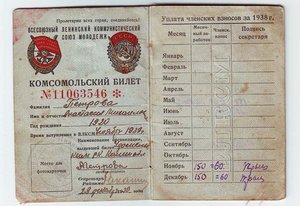 Пролетарии всех стран, соединяйтесь!
ВСЕСОЮЗНЫЙ ЛЕНИНСКИЙ КОММУНИСТИЧЕСКИЙ
СОЮЗ МОЛОДЕЖИ
КОМСОМОЛЬСКИЙ БИЛЕТ
№ 11063546 *
Фамилия Петрова
Имя и отчество Анастасия
Год рождения 1920
Время вступления в ВЛКСМ ноябрь 1938
Наименование
выдавшей билет
Место
для
фотокарточки
Личная подпись Петрова
Секретарь
Уплата членских взносов за 1938 г.
Месяц
Месячный заработок
Членск. взнос
Подпись секретаря
Январь
Февраль
Март
Апрель
Май
Июнь
Июль
Август
Сентябрь
Октябрь
Ноябрь 150 = 60
Декабрь 150 = 60